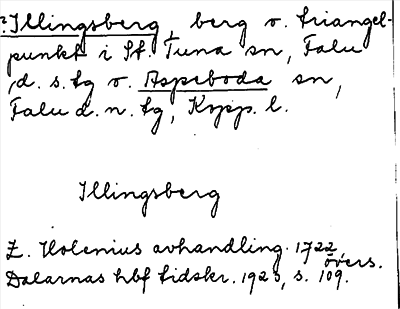 ?Illingsberg, berg o. triangel-
punkt i St. Tuna sn, Falu
d. s. tg o. Aspeboda sn,
Falu d. n. tg, Kopp. l.
Illingsberg
E. Holenius avhandling. 1722
övers.
Dalarnas hbf tidskr. 1923, s. 109.